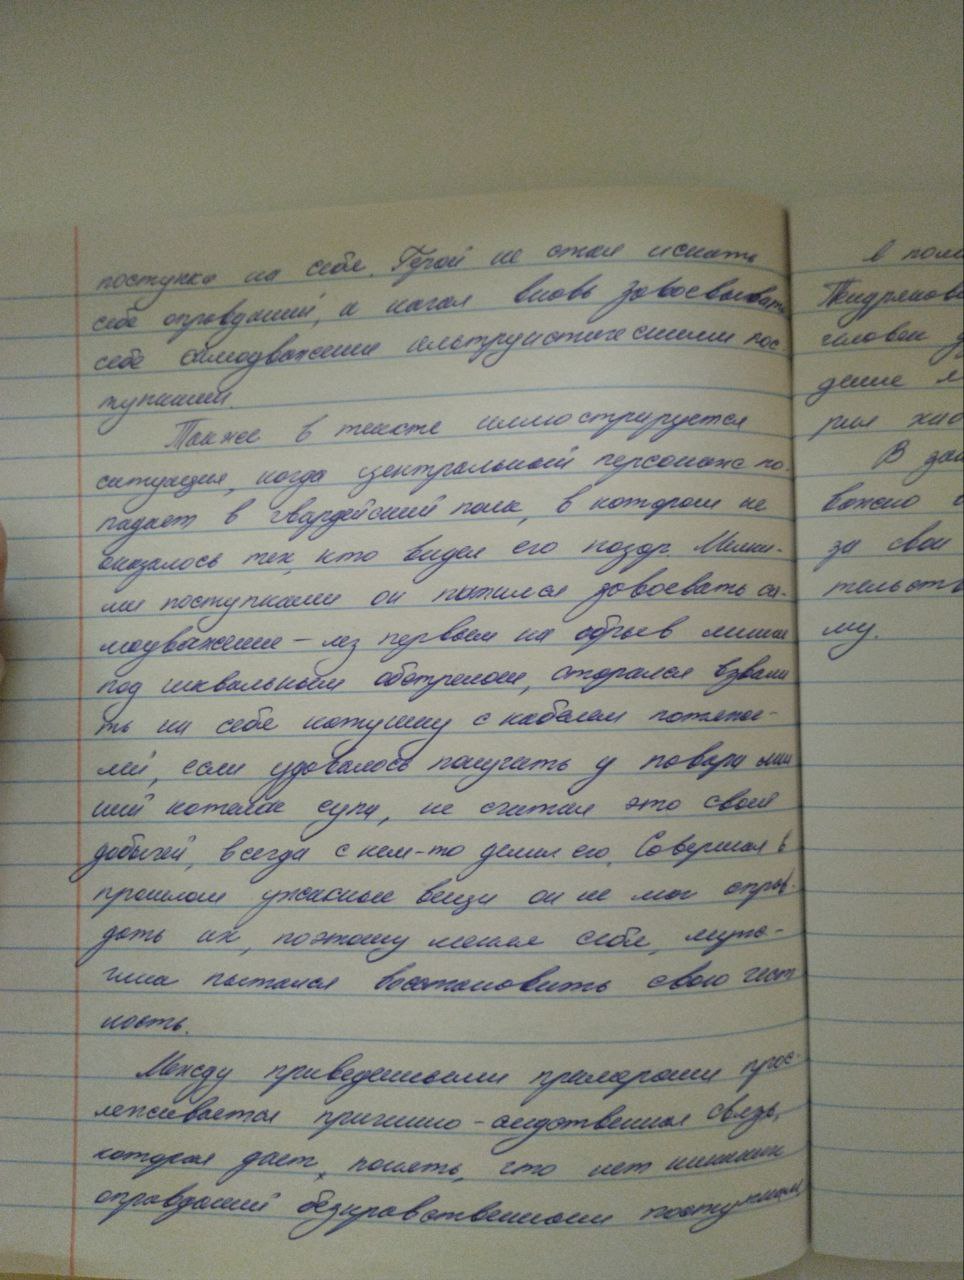 поступка на себя. Герой не стал искать
себе оправданий, а начал вновь завоевывать
себе самоуважение альтруистическими пос-
тупками.
Также в тексте иллюстрируется
ситуация, когда центральный персонаж по-
падает в гвардейский полк, в котором не
оказалось тех, кто видел его позор. Мелки-
ми поступками он пытался завоевать са-
моуважение – лез первым на обрыв линии
под шквальным обстрелом, старался взвали
ть на себя катушку с кабелем потяже-
лей, если удавалось получать у повара лиш
ний котелок супа, не считал это своей
добычей, всегда с кем-то делил его. Совершая в
прошлом ужасные вещи он не мог оправ-
дать их, поэтому меняя себя, мужч-
ина пытался восстановить свою чест
ность.
Между приведенными примерами прос-
леживается причинно-следственная связь,
которая дает понять, что нет никаких
оправданий безнравственным поступкам
в
В
важно
за свои
му.